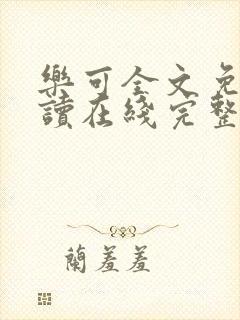 樂可全文免
讀在綫完整
蘭羞羞